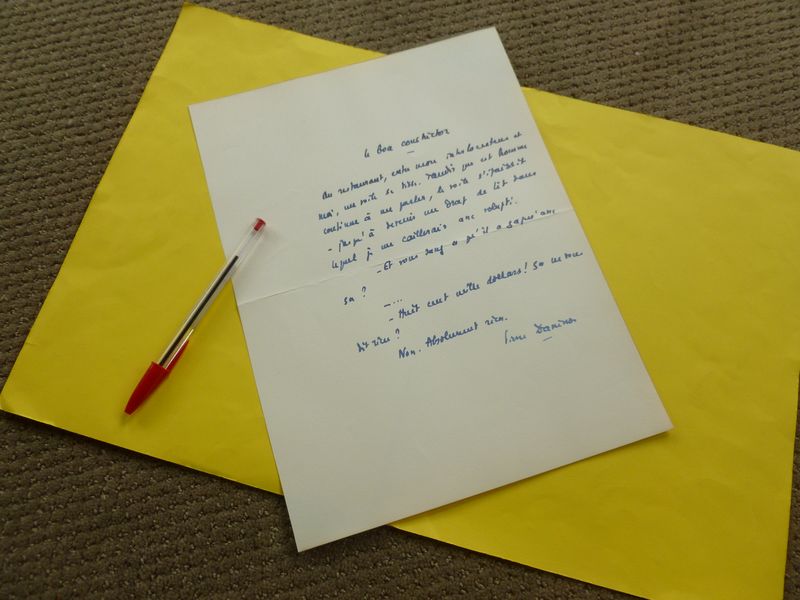 Le Boa constrictor
Au restaurant, entre mon interlocuteur et
moi, un voile se tisse. Tandis que cet homme
continue à me parler, le voile s'épaissit
- jusqu'à devenir un drap de lit dans
lequel je me
- Et vous savez ce qu'il a
ça ?
- ...
- Huit cent mille dollars! Ça ne vous
dit rien ?
Non. Absolument rien.
Pierre Daninos